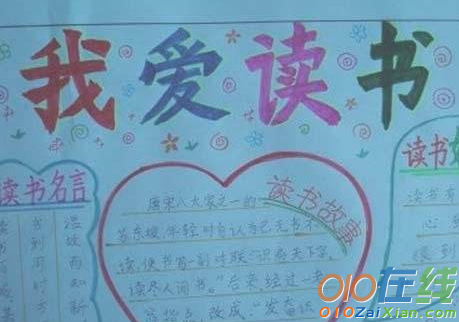 我爱读书
读书名言
温故而知新
书到用时方
读书故事
唐宋八大家之一的
苏东坡,年轻时自认为已无书不
读,便书写一副对联:"识遍天下字,
读尽人间书。"后来,经过一
改成:"发奋识
读书
读书有
心
010在线
010ZaiXian.Com